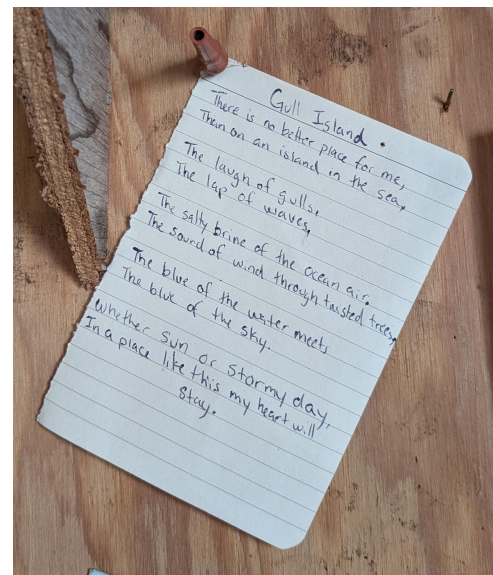 Gull Island
There is no better place for me,
Than on an island in the sea,
The laugh of gulls,
The lap of waves,
The salty brine of the ocean air,
The sound of wind through twisted trees,
The blue of the water meets
The blue of the sky.
Whether sun or stormy day,
In a place like this my heart will
Stay.